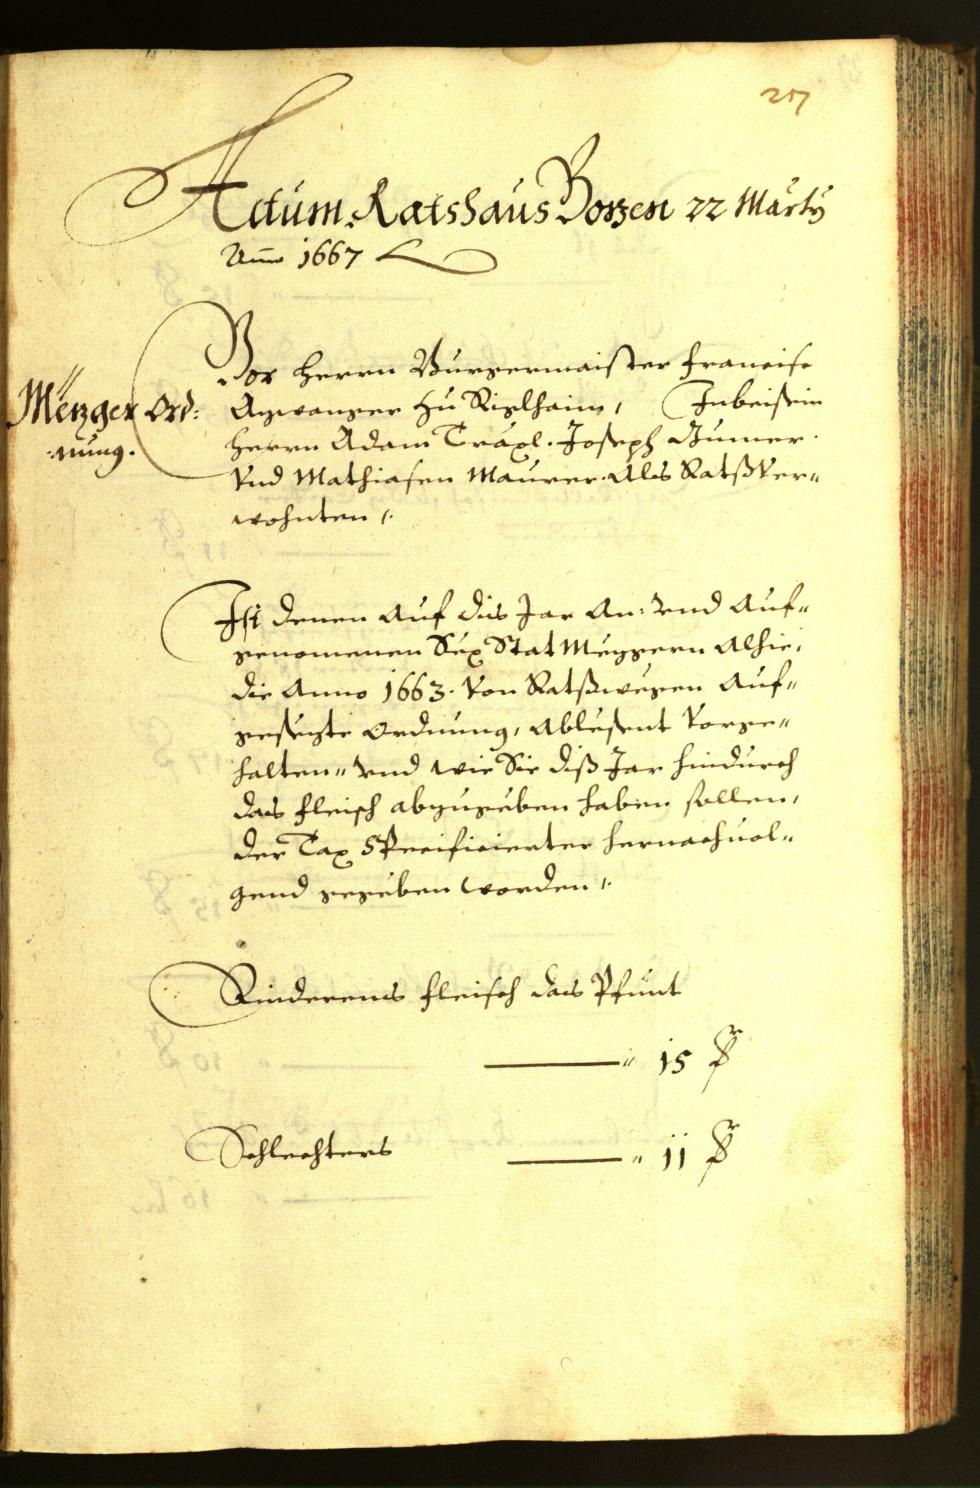 207
Actum Ratshaus Bozen 22 Marty
Anno 1667
Vor Herrn Burgermaister Francisc
Menzer Ord:
nung.
Azwanger Zu Riglhaim, Inbeisein
Herrn Adam Träxl. Joseph Gumer.
Vnd Mathiasen Maurer. Als Ratßver„
wohnten /.
Ist denen Auf dis Jar An: vnd Auf„
genomenen Sex Stat Mezgern Alhie,
die Anno 1663. Von Ratßwegen Auf„
gesezte Ordnung, Ablesent Vorge„
halten„ vnd wie Sie diß Jar hindurch
das fleisch abzugeben haben sollen,
der Tax Specificierter hernachuol„
gend gegeben worden /.
Rinderens fleisch das Pfunt
„ 15
Schlechters „ 11